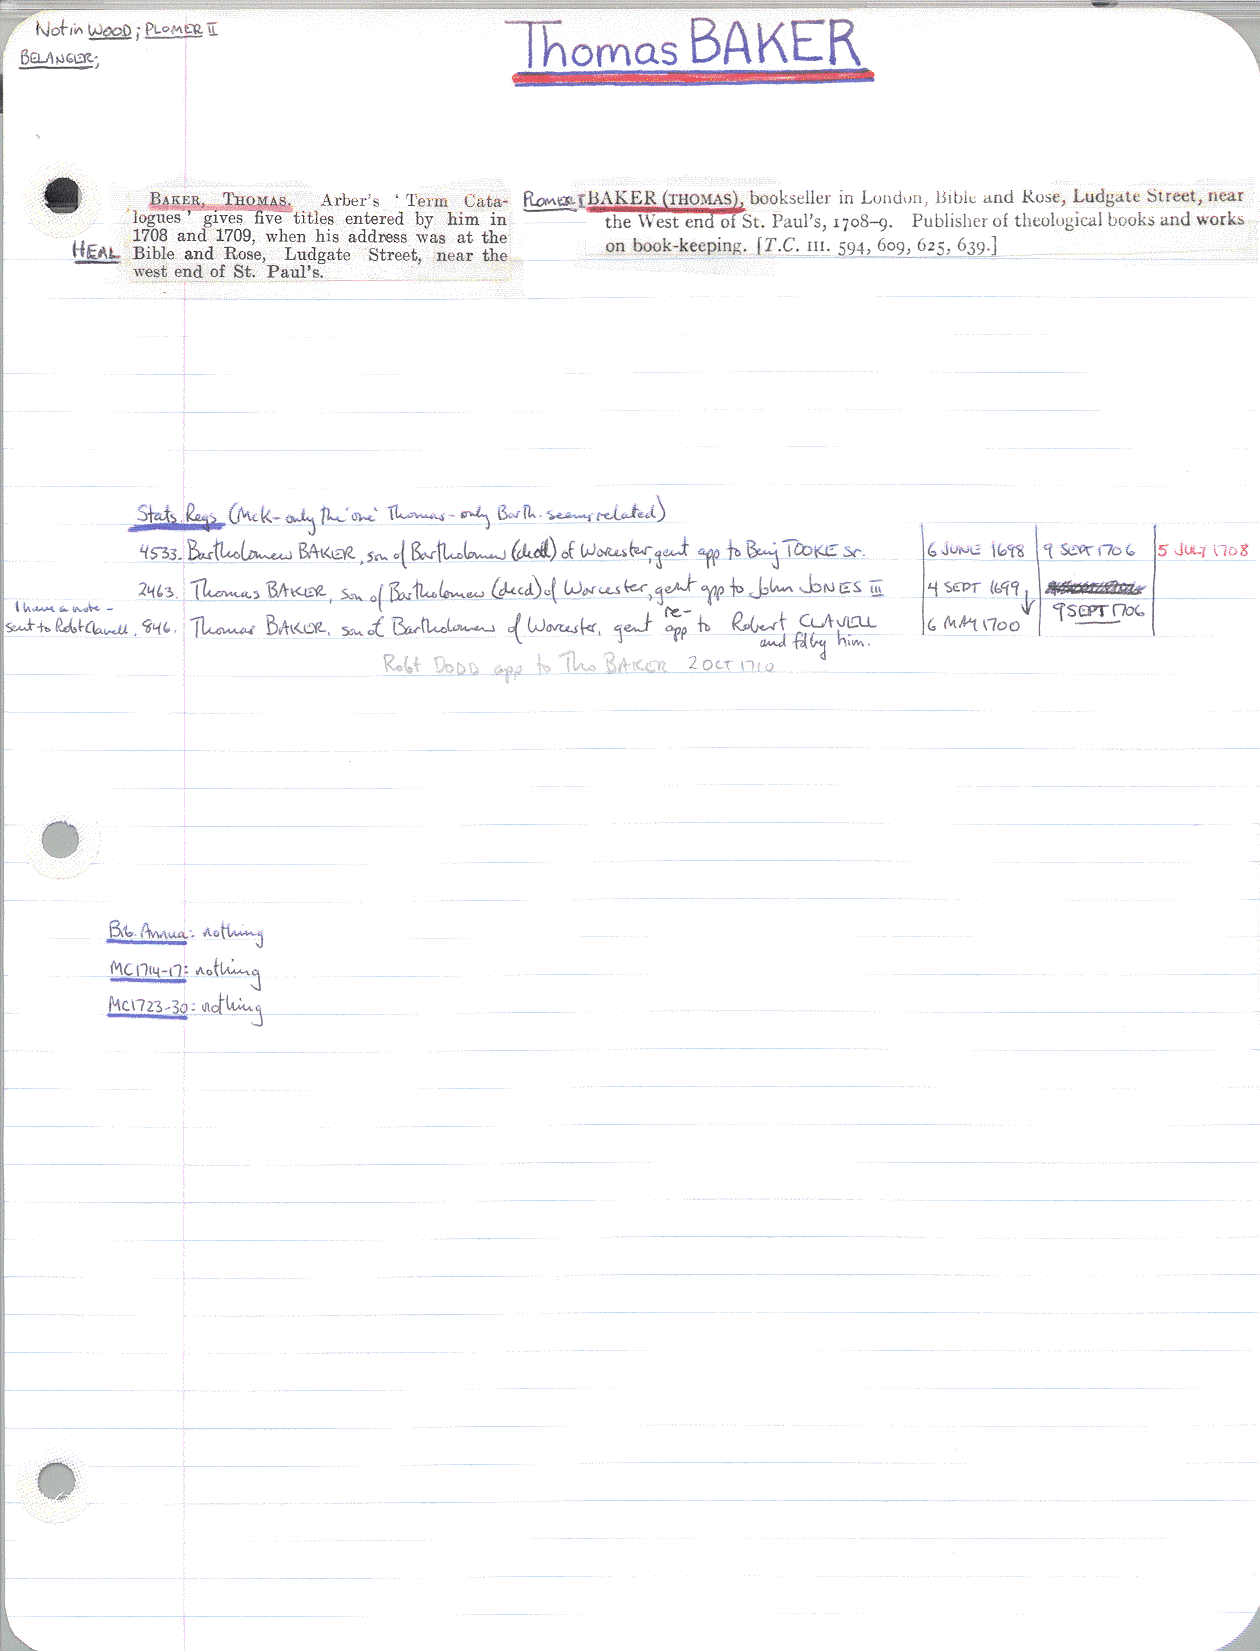 Not in WOOD; PLOMER II
BELANGER;
Thomas BAKER
HEAL
BAKER, THOMAS. Arber's ' Term Cata-
logues ' gives five titles entered by him in
1708 and 1709, when his address was at the
Bible and Rose, Ludgate Street, near the
west end of St. Paul's.
PLOMER I
BAKER (THOMAS), bookseller in London, Bible and Rose, Ludgate Street, near
the West end of St. Paul's, 1708–9. Publisher of theological books and works
on book-keeping. [T.C. III. 594, 609, 625, 639.]
Stats. Regs (McK - only the 'one' Thomas - only Barth. seems related)
4533. Bartholomew BAKER, son of Bartholomew (decd) of Worcester, gent app to Benj TOOKE Sr. 6 JUNE 1698 9 SEPT 1706 5 JULY 1708
2463. Thomas BAKER, son of Bartholomew (decd) of Worcester, gent app to John JONES III 4 SEPT 1699
9 SEPT 1706
I have a note -
sent to Robt Clavell. 846. Thomas BAKER, son of Bartholomew of Worcester, gent re-app to Robert CLAVELL 6 MAY 1700
and fd by him.
Robt DODD app to Tho BAKER 2 OCT 1710
Bib. Annua: nothing
MC1714-17: nothing
MC1723-30: nothing